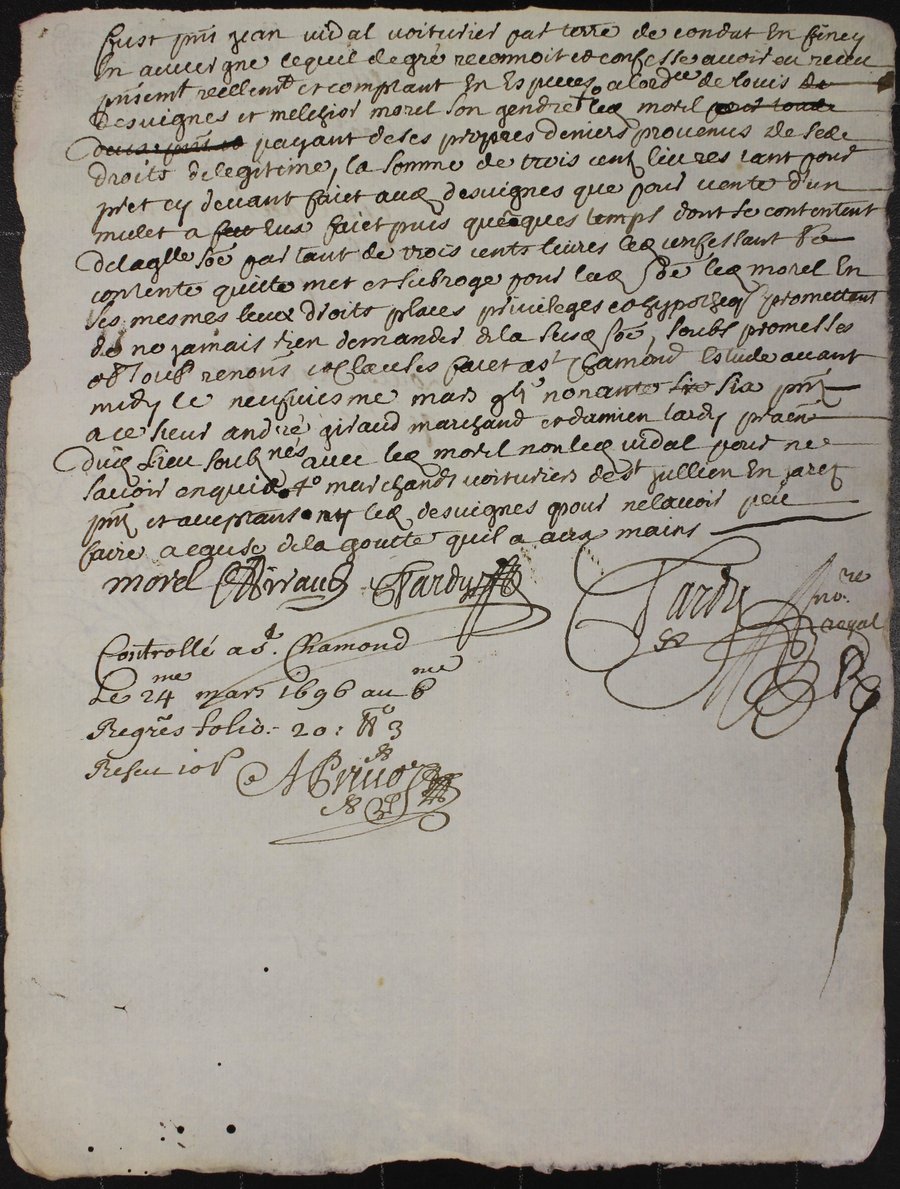 fust pnt jean vidal voiturier par terre de condat En finey
En auvergne lequel de gré reconnoit et confesse avoir eu receu
pnsemt reellemt et comptant En Especes a lordce de louis de
desvignes et melchior morel son gendre leq morel
payant de ses propres deniers provenus de ses
droits de legitime, la somme de trois cent livres tant pour
pret cy devant faict aud desvignes que pour vente d'un
mulet a luy faict puis quelques temps dont se contentent
delaqlle soe partant de trois cents livres leq confessant
contente quitte met et subroge pour lad soe leq morel En
ses mesmes lieux droits places privileges et hypotheq promettant
de ne jamais rien demander de la susd soe, soubs promesses
ob soub renons et clauses faict a st Chamond Estude avant
midy le neufviesme mars gbi nonante six pnt
a ce sieur andré giraud marchand et damien tardy praen
dud Lieu soubnés avec leq morel non leq vidal pour ne
savoir enquis marchands voituriers de st jullien En jarez
pnt et acceptans ny leq desvignes pour ne lavoir peu
faire a cause de la goutte quil a aux mains
morel Giraud Tardy
Tardy no.re royal
Controllé a st. Chamond
Le 24me mars 1696 au 6me
Regrẽs folio - 20 : No 3
Reseu 10s